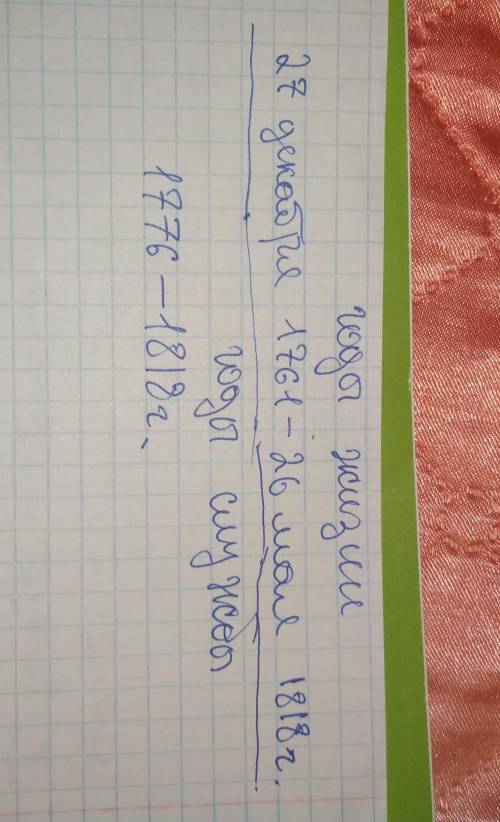 годы жизни
27 декабря 1761 - 26 мая 1818г.
годы службы
1776 - 1818г.